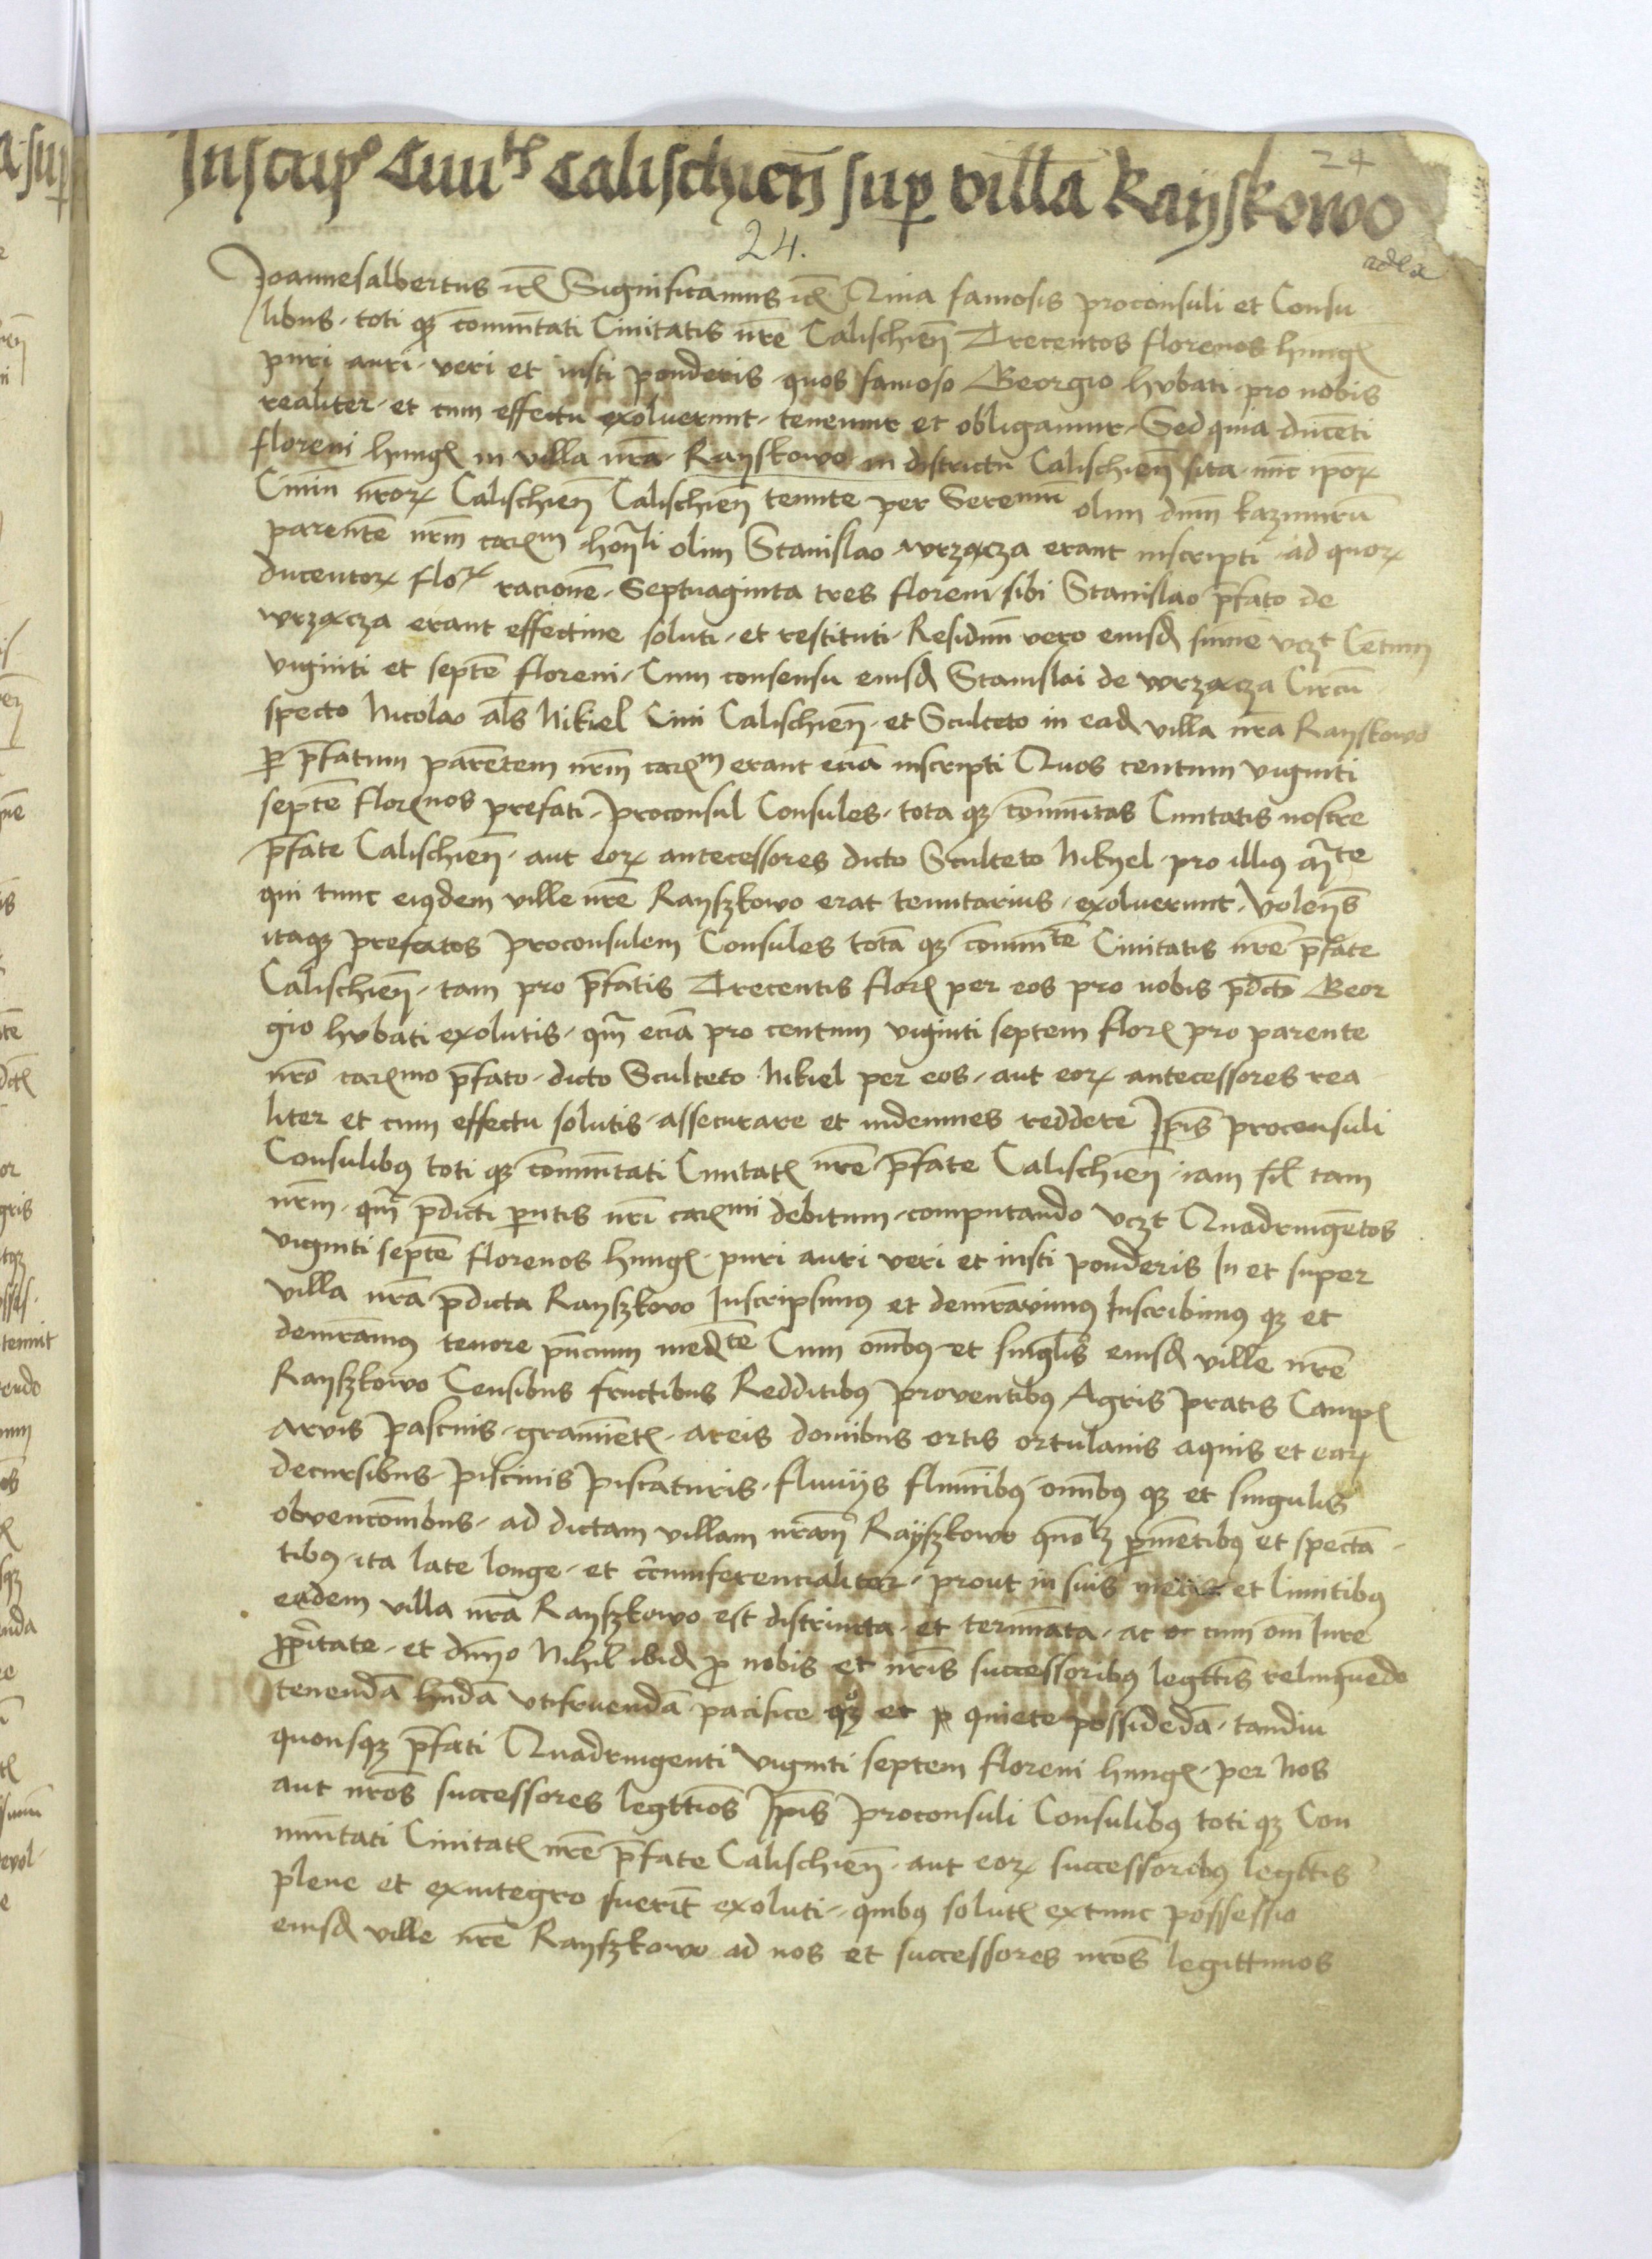 24
Inscrip̄ Ciuitˢ Calischien̄ sup villā Rayskowo
24.
Joannesalbertus ꝛcꝭ Significamus ꝛcꝭ Quia famosis proconsuli et Consu
libus · toti qꝫ com̄nitati Ciuitatis nr̄e Calischien̄ Trecentos florenos hungꝭ
puri auri · veri et iusti ponderis · quos famoso Georgio hvbati · pro nobis
realiter · et cum effectu exoluerunt · tenemur et obligamur · Sed quia ducēti
floreni hungꝭ in villa nr̄a · Rayskowo in districtu Calischien̄ sita · nūc ip̄oꝝ
Ciuiū nr̄oꝝ Calischien̄ Calischien̄ tenute per Serenmū olim dnm̄ kazimirū
parentē nrm̄ carꝭm honli olim Stanislao wrzącza erant inscripti · ad quoꝝ
ducentoꝝ floꝝ racionē · Septuaginta tres floreni sibi Stanislao p̄fato de
wrzącza erant effectiue soluti · et restituti · Residuū vero eiusđ sum̄e vcꝫt Cetum
viginti et septē floreni · Cum consensu eiusđ Stanislai de wrzącza Circū
specto Nicolao al̄s Nikiel Ciui Calischien̄ · et Sculteto in eađ villa nr̄a Rayskowo
ꝑ p̄fatum parētem nrm̄ carꝭm erant eciā inscripti Quos centum viginti
septē florꝭnos prefati · proconsul Consules · tota qꝫ com̄nitas Ciuitatis nostre
p̄fate Calischien̄ · aut eoꝝ antecessores dicto Sculteto Nikyel · pro illiꝯ
qui tunc eiꝯdem ville nr̄e Rayszkowo erat tenutarius · exoluerunt · Volen̄s
itaqꝫ prefatos proconsulem Consules totā qꝫ com̄nitē Ciuitatis nr̄e p̄fate
Calischien̄ · tam pro p̄fatis Trecentis florꝭ per eos pro nobis p̄dc̄to Geor
gio hvbati exolutis · qm̄ eciā pro centum viginti septem florꝭ pro parente
nr̄o carꝭmo p̄fato · dicto Sculteto Nikiel per eos · aut eoꝝ antecessores rea
liter et cum effectu solutis · assecurare et indemnes reddere Ip̄is proconsuli
Consulibꝯ toti qꝫ com̄nitati Ciuitatꝭ nr̄e p̄fate Calischien̄ · iam sil̄ tam
nrm̄ · qm̄ p̄dicti pn̄tis nr̄i carꝭmi debitum · computando vcꝫt Quadringētos
viginti septē florenos hungꝭ · puri auri veri et iusti ponderis In et super
villa nr̄a p̄dicta Rayszkowo Inscripsimꝯ et demr̄auimꝯ Inscribimꝯ qꝫ et
demr̄amꝯ tenore pn̄cium medtē Cum om̄ibꝯ et singl̄is eiusđ ville nr̄e
Rayszkowo Censibus fructibus Redditibꝯ proventibꝯ Agris pratis Campꝭ
Arvis pascuis · gramīetꝭ · areis domibus ortis ortulanis aquis et eaꝝ
decursibus · piscinis piscaturis · fluuijs flumībꝯ · om̄ibꝯ qꝫ et singulis
obvencom̄bus · ad dictam villam nr̄am Rayszkowo quolꝫ ꝑtinētibꝯ et spectā ·
tibꝯ · ita late longe · et circumferencialiter · prout in suis metis et limitibꝯ
eadem villa nr̄a Rayszkowo est distrincta · et termīata · ac cum om̄i Iure
pp̄rietate · et dn̄io Nihil ibiđ ꝓ nobis et nr̄is successoribꝯ legttīs relinquēdo
tenendā hn̄dā vtifruendā pacifice qꝫ et quiete possidēdā · tamdiu
quousqꝫ p̄fati Quadringenti viginti septem floreni hungꝭ · per Nos
aut nr̄os successores legttīos Ip̄is proconsuli Consulibꝯ toti qꝫ Con
mūitati Ciuitatꝭ nr̄e p̄fate Calischien̄ · aut eoꝝ successoribꝯ legttīs
plene et exintegro fuerīt exoluti · quibꝯ solutꝭ extunc possessio
eiusđ ville nr̄e Rayszkowo ad nos et successores nr̄os legittimos